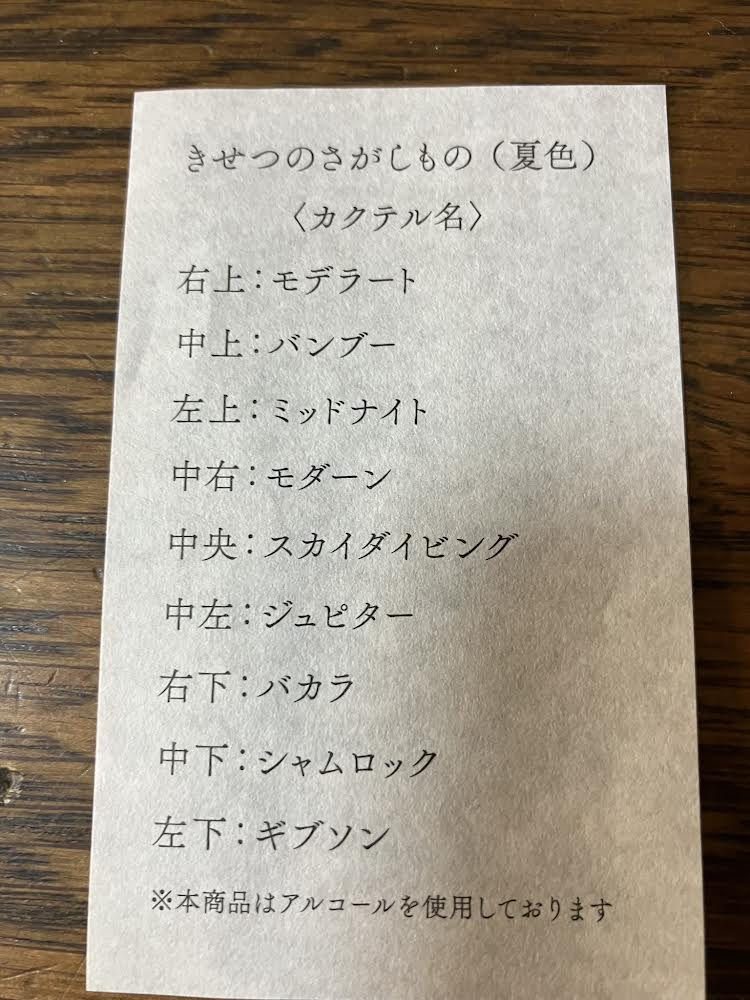 きせつのさがしもの（夏色）
〈カクテル名〉
右上：モデラート
中上：バンブー
左上：ミッドナイト
中右：モダーン
中央：スカイダイビング
中左：ジュピター
右下：バカラ
中下：シャムロック
左下：ギブソン
※本商品はアルコールを使用しております